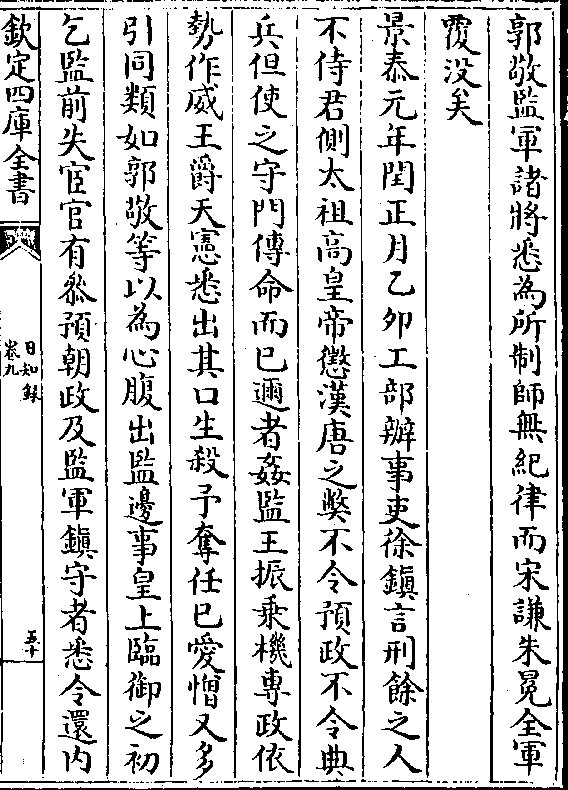 郭敬監軍諸將悉為所制師無紀律而宋謙朱冕全軍
覆没矣
景泰元年閏正月乙夘工部辦事吏徐鎮言刑餘之人
不侍君側太祖高皇帝懲漢唐之獘不令預政不令典
兵但使之守門傳命而已邇者姦監王振乗機專政依
勢作威王爵天憲悉出其口生殺予奪任已愛憎又多
引同類如郭敬等以為心腹出監邊事皇上臨御之初
乞監前失宦官有叅預朝政及監軍鎮守者悉令還内
欽定四庫全書
日知録
卷九
五十